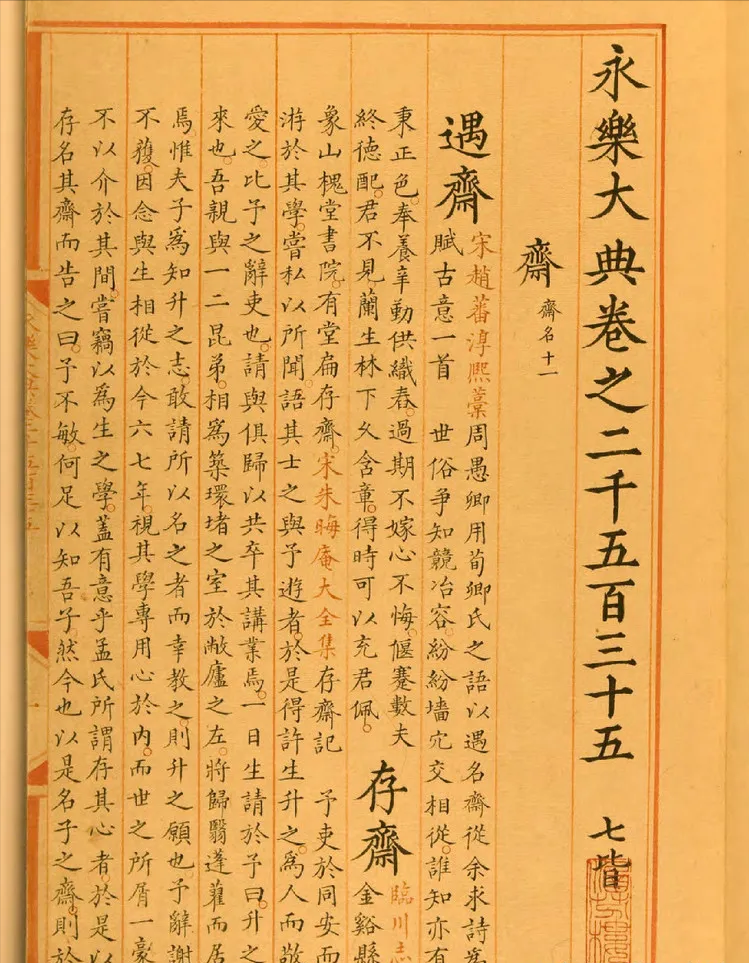 永樂大典卷之二千五百三十五 七皆
齋 齋名十一
遇齋
宋趙蕃淳熙藁周愚卿用荀卿氏之語以遇名齋從余求詩爲
賦古意一首 世俗爭知競冶容紛紛墻穴交相從誰知亦有
秉正色奉養辛勤供織舂過期不嫁心不悔偃蹇數夫
終德配君不見蘭生林下久含章得時可以充君佩
存齋
臨川志
金谿縣
象山槐堂書院有堂扁存齋宋朱晦庵大全集存齋記 予吏於同安而
游於其學嘗私以所聞語其士之與予遊者於是得許生升之爲人而敬
愛之比予之辭吏也請與俱歸以共卒其講業焉一日生請於予曰升之
來也吾親與一二昆弟相爲築環堵之室於敝廬之左將歸翳蓬藋而居
焉惟夫子爲知升之志敢請所以名之者而幸教之則升之願也予辭謝
不獲因念與生相從於今六七年視其學專用心於內而世之所屑一豪
不以介於其間嘗竊以爲生之學蓋有意乎孟氏所謂存其心者於是以
存名其齋而告之曰予不敏何足以知吾子然今也以是名子之齋則於